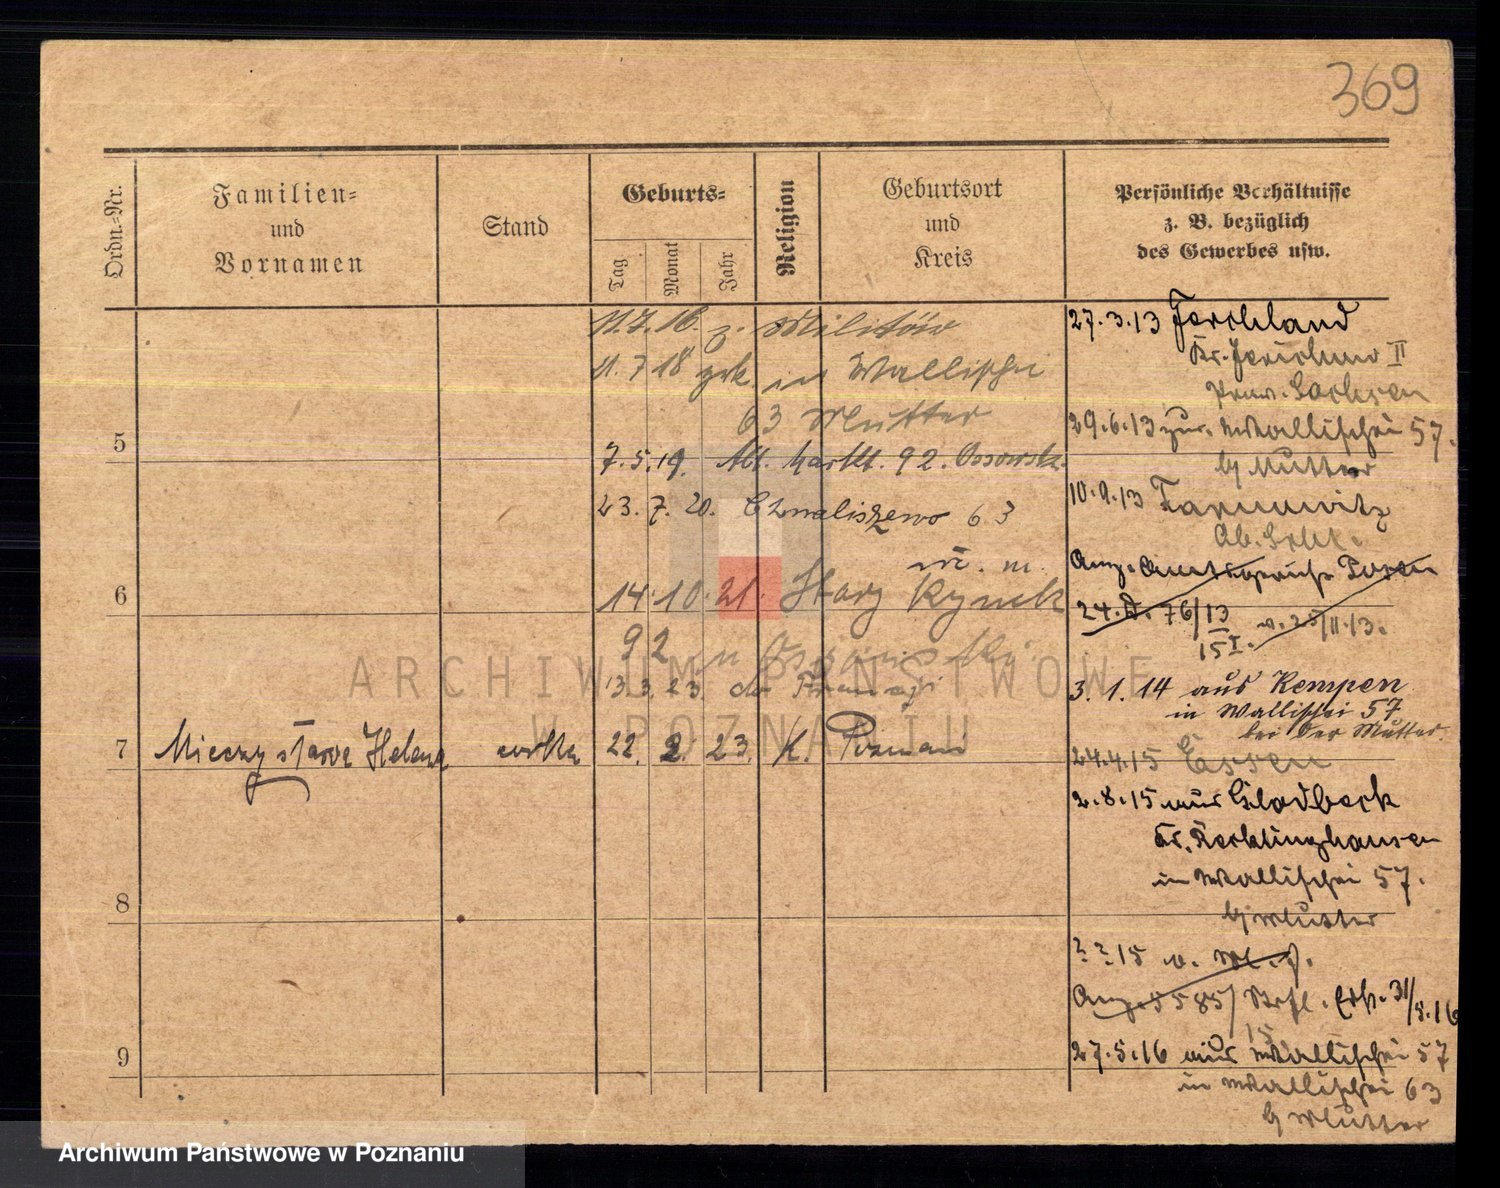 369
Ordn.-Nr.
Familien-
und
Vornamen
Stand
Geburts-
Tag
Monat
Jahr
Religion
Geburtsort
und
Kreis
Persönliche Verhältnisse
z. B. bezüglich
des Gewerbes usw.
11.7.16. z. Militär
11.7.18 zrk in Wallischei
63 Mutter
7.5.19. Alt. Markt. 92. Ossowska
23.7.20. Chwaliszewo 63
14.10.21. Stary Rynek
92
13.3.23. do Francji
5
6
7 Mieczysława Helena córka 22. 2. 23. K. Poznań
8
9
27.3.13 Ferchland
Kr. Jerichow II
Prov. Sachsen
29.6.13 zur. Wallischei 57.
b/ Mutter
10.9.13 Tarnowitz
Ob. Schl.
24. 76/13
v. 25/11.13.
3.1.14 aus Kempen
in Wallischei 57
bei der Mutter.
24.4.15 Essen
2.8.15 aus Gladbeck
Kr. Recklinghausen
in Wallischei 57.
b/ Mutter
? ? 15 v.
5585/15
27.5.16 aus Wallischei 57
in Wallischei 63
b/ Mutter
ARCHIWUM PAŃSTWOWE
W POZNANIU
Archiwum Państwowe w Poznaniu